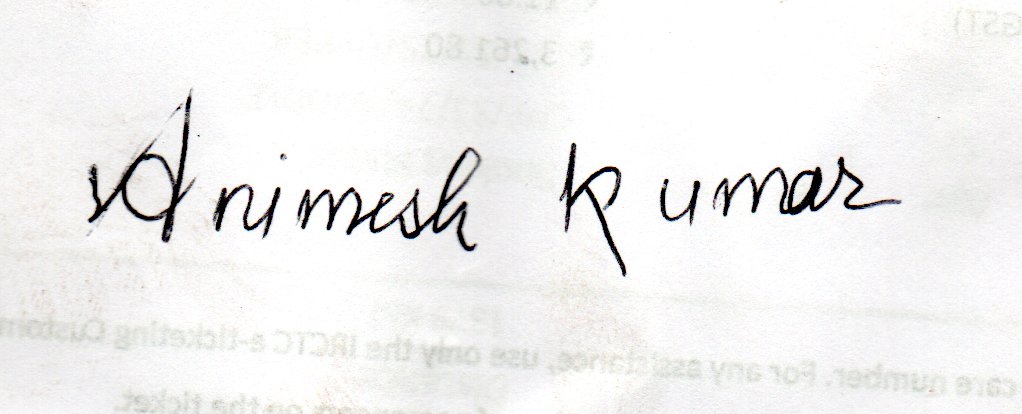 GST)
₹ 3,261.80
Animesh Kumar
care number. For any assistance, use only the IRCTC e-ticketing Custom
on the ticket.